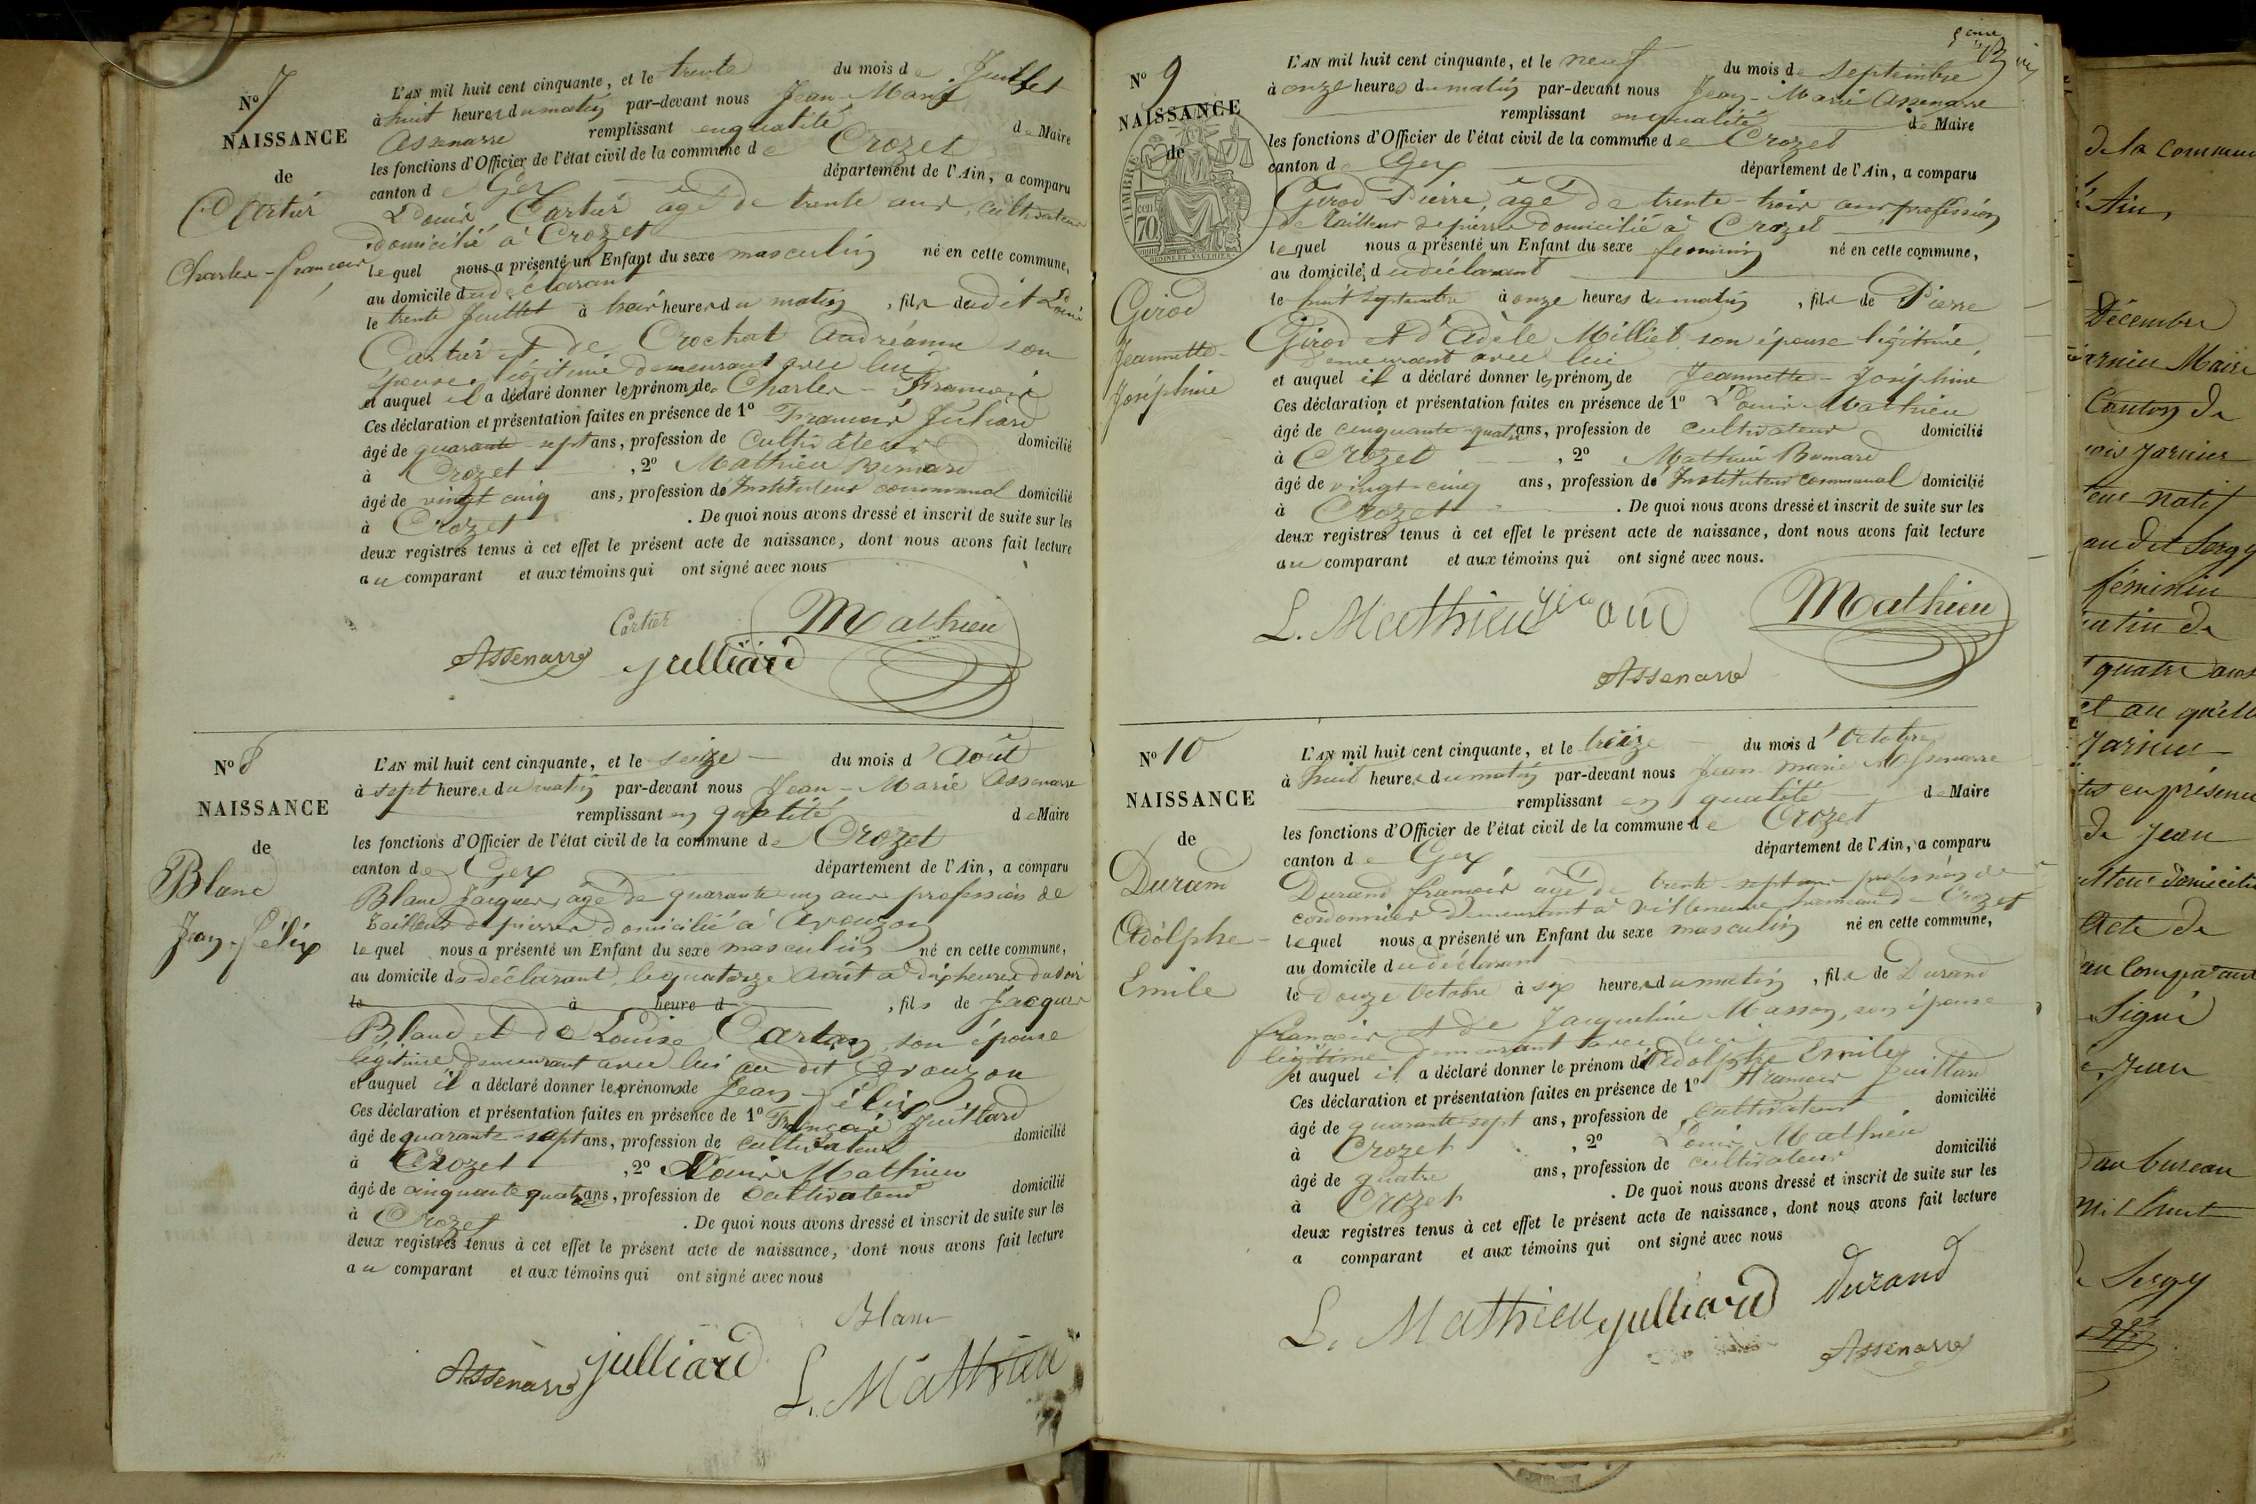 No 7
NAISSANCE
de
Cartier
Charles-françois
L'AN mil huit cent cinquante, et le trente du mois de Juillet
à huit heures du matin par-devant nous Jean-Marie
Assenarre remplissant en qualité de Maire
les fonctions d'Officier de l'état civil de la commune de Crozet
canton de Gex département de l'Ain, a comparu
Louis Cartier âgé de trente ans, cultivateur
domicilié à Crozet
lequel nous a présenté un Enfant du sexe masculin né en cette commune,
au domicile du déclarant
le trente Juillet à trois heures du matin, fils dudit Louis
Cartier et de Crochat Andréanne son
épouse légitime demeurant avec lui
et auquel il a déclaré donner les prénoms de Charles-François
Ces déclaration et présentation faites en présence de 1o François Julliard
âgé de quarante-sept ans, profession de Cultivateur domicilié
à Crozet, 2o Mathieu Bernard
âgé de vingt cinq ans, profession de Instituteur communal domicilié
à Crozet. De quoi nous avons dressé et inscrit de suite sur les
deux registres tenus à cet effet le présent acte de naissance, dont nous avons fait lecture
au comparant et aux témoins qui ont signé avec nous
Cartier Mathieu
Assenarre Julliard
No 8
NAISSANCE
de
Blanc
Jean-félix
L'AN mil huit cent cinquante, et le seize du mois d'Août
à sept heures du matin par-devant nous Jean-Marie Assenarre
remplissant en qualité de Maire
les fonctions d'Officier de l'état civil de la commune de Crozet
canton de Gex département de l'Ain, a comparu
Blanc Jacques, âgé de quarante ans profession de
tailleur de pierre domicilié à Avouzon
lequel nous a présenté un Enfant du sexe masculin né en cette commune,
au domicile du déclarant, le quatorze août à dix heures du soir
le à heure d, fils de Jacques
Blanc et de Louise son épouse
légitime demeurant avec lui au dit Avouzon
et auquel il a déclaré donner les prénoms de Jean-félix
Ces déclaration et présentation faites en présence de 1o François Juillard
âgé de quarante-sept ans, profession de cultivateur domicilié
à Crozet, 2o Louis Mathieu
âgé de cinquante quatre ans, profession de Cultivateur domicilié
à Crozet. De quoi nous avons dressé et inscrit de suite sur les
deux registres tenus à cet effet le présent acte de naissance, dont nous avons fait lecture
au comparant et aux témoins qui ont signé avec nous
Blanc
Assenarre Julliard L. Mathieu
No 9
NAISSANCE
de
TIMBRE
70
Girod
Jeannette-
Joséphine
L'AN mil huit cent cinquante, et le neuf du mois de septembre
à onze heures du matin par-devant nous Jean-Marie Assenarre
remplissant en qualité de Maire
les fonctions d'Officier de l'état civil de la commune de Crozet
canton de Gex département de l'Ain, a comparu
Girod Pierre, âgé de trente-trois ans profession
de tailleur de pierre domicilié à Crozet
lequel nous a présenté un Enfant du sexe feminin né en cette commune,
au domicile du déclarant
le huit septembre à onze heures du matin, fille de Pierre
Girod et d'Adèle Milliet son épouse légitime,
demeurant avec lui
et auquel il a déclaré donner les prénoms de Jeannette-Joséphine
Ces déclaration et présentation faites en présence de 1o Louis Mathieu
âgé de cinquante-quatre ans, profession de cultivateur domicilié
à Crozet, 2o Mathieu Bernard
âgé de vingt-cinq ans, profession de Instituteur communal domicilié
à Crozet. De quoi nous avons dressé et inscrit de suite sur les
deux registres tenus à cet effet le présent acte de naissance, dont nous avons fait lecture
au comparant et aux témoins qui ont signé avec nous.
L. Mathieu Mathieu
Assenarre
No 10
NAISSANCE
de
Durand
Adolphe-
Emile
L'AN mil huit cent cinquante, et le treize du mois d'Octobre
à huit heures du matin par-devant nous Jean-marie Assenarre
remplissant en qualité de Maire
les fonctions d'Officier de l'état civil de la commune de Crozet
canton de Gex département de l'Ain, a comparu
Durand françois âgé de trente-sept ans profession de
cordonnier demeurant à Villeneuve hameau de Crozet
lequel nous a présenté un Enfant du sexe masculin né en cette commune,
au domicile du déclarant
le douze Octobre à six heures du matin, fils de Durand
françois et de Jacqueline Masson, son épouse
légitime demeurant avec lui
et auquel il a déclaré donner le prénom de Adolphe Emile
Ces déclaration et présentation faites en présence de 1o François Juillard
âgé de quarante-sept ans, profession de cultivateur domicilié
à Crozet, 2o Louis Mathieu
âgé de quatre ans, profession de cultivateur domicilié
à Crozet. De quoi nous avons dressé et inscrit de suite sur les
deux registres tenus à cet effet le présent acte de naissance, dont nous avons fait lecture
a comparant et aux témoins qui ont signé avec nous
L. Mathieu Julliard Durand
Assenarre
de la commune
Ain,
Décembre
Maire
Canton de
natif
au dit Sergy
féminin
matin de
quatre ans
et au
en présence
de Jean
domicilié
Acte de
au Comparant
Signé
Jean
au bureau
mil huit
de Sergy